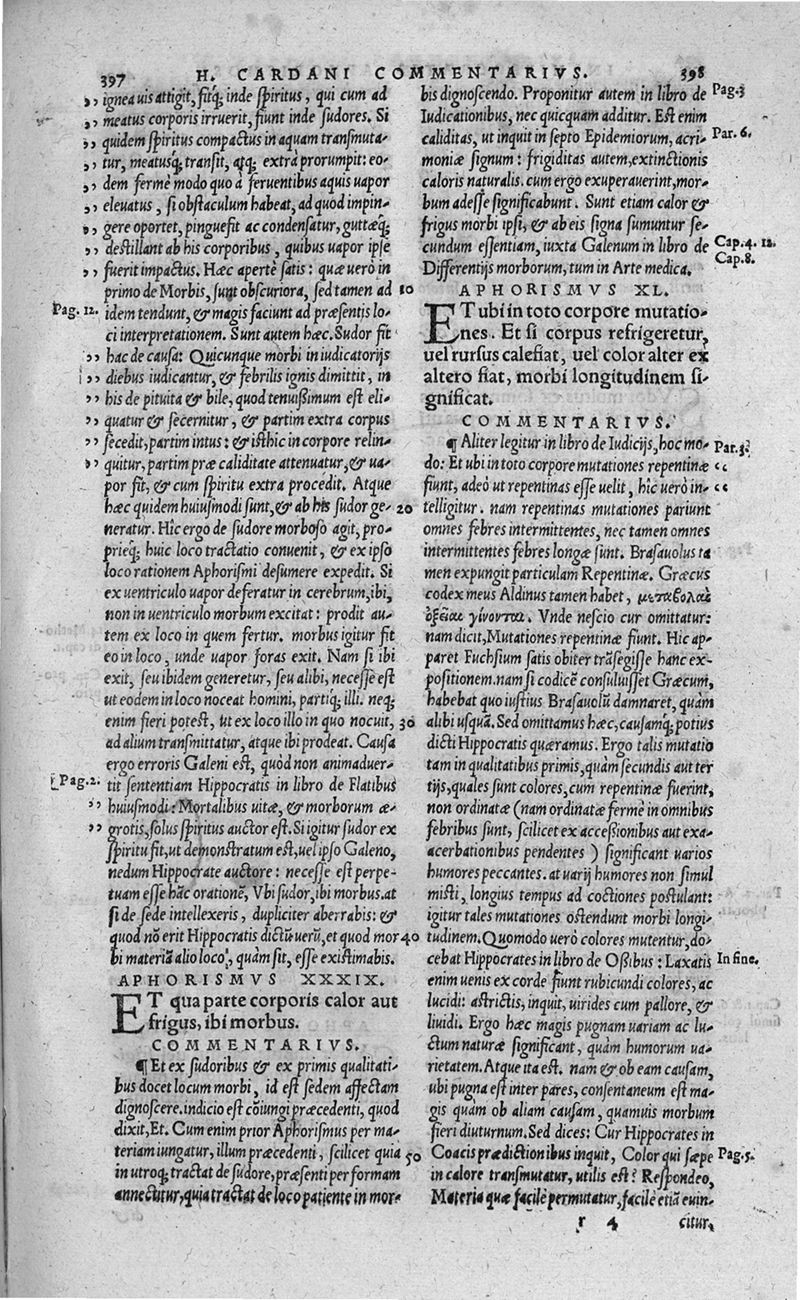 397 H. CARDANI COMMENTARIVS. 398
,, ignea uis attigit, fitq́; inde spiritus, qui cum ad
,, meatus corporis irruerit, fiunt inde sudores. Si
,, quidem spiritus compactus in aquam transmuta-
,, tur, meatusq́; transit, atq́; extrà prorumpit: eo-
,, dem fermè modo quo à feruentibus aquis uapor
,, eleuatus, si obstaculum habeat, ad quod impin-
,, gere oportet, pinguefit ac condensatur, guttæq́;
,, destillant ab his corporibus, quibus uapor ipse
,, fuerit impactus. Hæc apertè satis: quæ uerò in
primo de Morbis, sunt obscuriora, sed tamen ad 10
Pag. 12. idem tendunt, & magis faciunt ad præsentis lo-
ci interpretationem. Sunt autem hæc. Sudor fit
,, hac de causa: Quicunque morbi in iudicatorijs
,, diebus iudicantur, & febrilis ignis dimittit, in
,, his de pituita & bile, quod tenuissimum est eli-
,, quatur & secernitur, & partim extra corpus
,, secedit, partim intus: & isthic in corpore relin-
,, quitur, partim præ caliditate attenuatur, & ua-
por fit, & cum spiritu extra procedit. Atque
hæc quidem huiusmodi sunt, & ab his sudor ge- 20
neratur. Hîc ergo de sudore morboso agit, pro-
prieq́; huic loco tractatio conuenit, & ex ipso
loco rationem Aphorismi desumere expedit. Si
ex uentriculo uapor deferatur in cerebrum, ibi,
non in uentriculo morbum excitat: prodit au-
tem ex loco in quem fertur. morbus igitur fit
eo in loco, unde uapor foras exit. Nam si ibi
exit, seu ibidem generetur, seu alibi, necesse est
ut eodem in loco noceat homini, partiq́; illi. neq́;
enim fieri potest, ut ex loco illo in quo nocuit, 30
ad alium transmittatur, atque ibi prodeat. Causa
ergo erroris Galeni est, quòd non animaduer-
Pag. 2. tit sententiam Hippocratis in libro de Flatibus
,, huiusmodi: Mortalibus uitæ, & morborum æ-
,, grotis, solus spiritus auctor est. Si igitur sudor ex
spiritu fit, ut demonstratum est, uel ipso Galeno,
nedum Hippocrate auctore: necesse est perpe-
tuam esse hãc orationẽ, Vbi sudor, ibi morbus. at
si de sede intellexeris, dupliciter aberrabis: &
quod nõ erit Hippocratis dictũ uerũ, et quod mor 40
bi materiã alio loco, quàm sit, esse existimabis.
APHORISMVS XXXIX.
ET qua parte corporis calor aut
frigus, ibi morbus.
COMMENTARIVS.
¶ Et ex sudoribus & ex primis qualitati-
bus docet locum morbi, id est sedem affectam
dignoscere. indicio est cõiungi præcedenti, quod
dixit, Et. Cum enim prior Aphorismus per ma-
teriam iungatur, illum præcedenti, scilicet quia 50
in utroq́; tractat de sudore, præsenti per formam
annectitur, quia tractat de loco patiente in mor-
bis dignoscendo. Proponitur autem in libro de Pag. 3
Iudicationibus, nec quicquam additur. Est enim
caliditas, ut inquit in septo Epidemiorum, acri- Par. 6.
moniæ signum: frigiditas autem, extinctionis
caloris naturalis. cum ergo exuperauerint, mor-
bum adesse significabunt. Sunt etiam calor &
frigus morbi ipsi, & ab eis signa sumuntur se-
cundum essentiam, iuxta Galenum in libro de Cap. 4. 12.
Differentijs morborum, tum in Arte medica. Cap. 8.
APHORISMVS XL.
ET ubi in toto corpore mutatio-
nes. Et si corpus refrigeretur,
uel rursus calefiat, uel color alter ex
altero fiat, morbi longitudinem si-
gnificat.
COMMENTARIVS.
¶ Aliter legitur in libro de Iudicijs, hoc mo- Par. 3.
do: Et ubi in toto corpore mutationes repentinæ ‹‹
fiunt, adeò ut repentinas esse uelit, hîc uerò in- ‹‹
telligitur. nam repentinas mutationes pariunt
omnes febres intermittentes, nec tamen omnes
intermittentes febres longæ sunt. Brasauolus ta
men expungit particulam Repentinæ. Græcus
codex meus Aldinus tamen habet, μεταβολαὶ
ὀξεῖαι γίνονται. Vnde nescio cur omittatur:
nam dicit, Mutationes repentinæ fiunt. Hic ap-
paret Fuchsium satis obiter trãsegisse hanc ex-
positionem. nam si codicẽ consuluisset Græcum,
habebat quo iustius Brasauolũ damnaret, quàm
alibi usquã. Sed omittamus hæc, causamq́; potius
dicti Hippocratis quæramus. Ergo talis mutatio
tam in qualitatibus primis, quàm secundis aut ter
tijs, quales sunt colores, cum repentinæ fuerint,
non ordinatæ (nam ordinatæ fermè in omnibus
febribus sunt, scilicet ex accessionibus aut exa-
acerbationibus pendentes ) significant uarios
humores peccantes. at uarij humores non simul
misti, longius tempus ad coctiones postulant:
igitur tales mutationes ostendunt morbi longi-
tudinem. Quomodo uerò colores mutentur, do-
cebat Hippocrates in libro de Ossibus: Laxatis In fine.
enim uenis ex corde fiunt rubicundi colores, ac
lucidi: astrictis, inquit, uirides cum pallore, &
liuidi. Ergo hæc magis pugnam uariam ac lu-
ctum naturæ significant, quàm humorum ua-
rietatem. Atque ita est. nam & ob eam causam,
ubi pugna est inter pares, consentaneum est ma-
gis quam ob aliam causam, quamuis morbum
fieri diuturnum. Sed dices: Cur Hippocrates in
Coacis prædictionibus inquit, Color qui sæpe Pag. 5.
in calore transmutatur, utilis est? Respondeo,
Materia quæ facilè permutatur, facilè etiã euin-
r 4 citur,